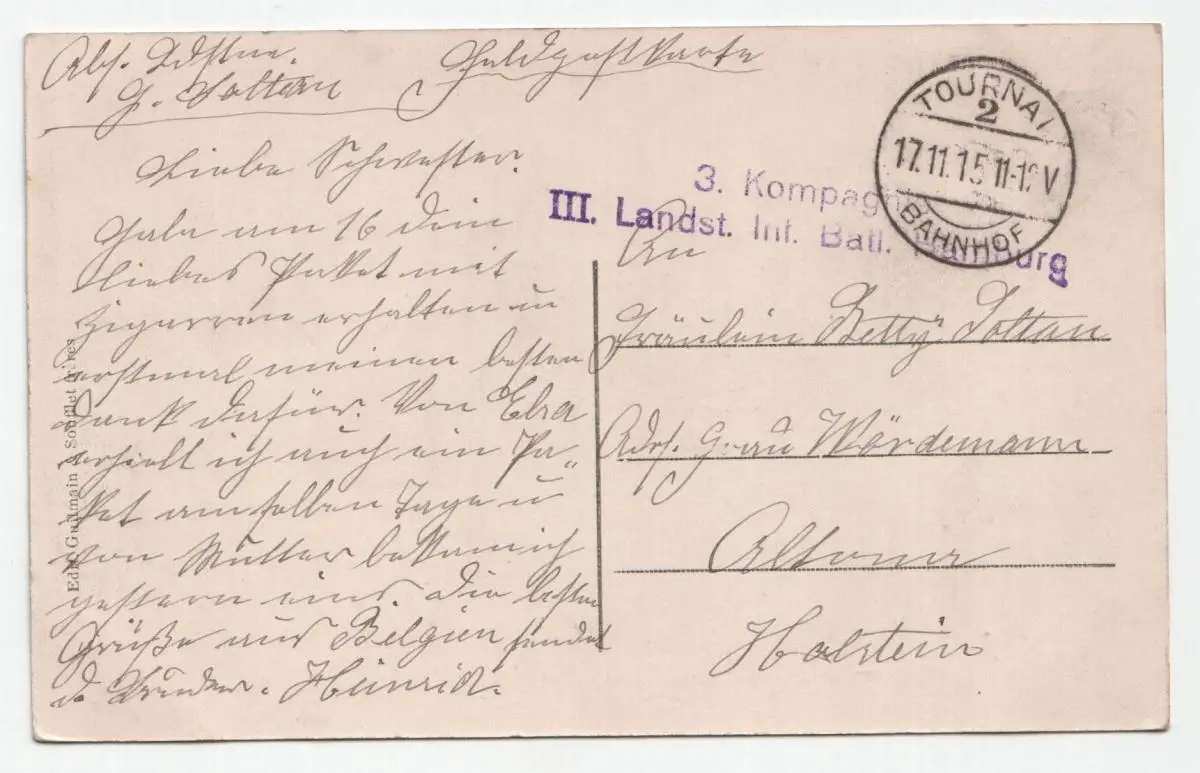 Abs. Ldstm.
H. Soltau
Feldpostkarte
TOURNAI
2
17.11.15 11-12 V
BAHNHOF
3. Kompagn
III. Landst. Inf. Batl. Hamburg
Liebe Schwester.
Habe am 16 dein
liebes Paket mit
Zigarren erhalten u
erstmal meinen besten
Dank dafür. Von Elsa
erhielt ich auch ein Pa-
ket am selben Tage u
von Mutter bekam ich
gestern eins. Die besten
Grüße aus Belgien sendet
d. Bruder. Heinrich.
An
Fräulein Betty Soltau
Adr. Frau Wördemann
Altona
Holstein
Edit. Guilmain Soufflet frères